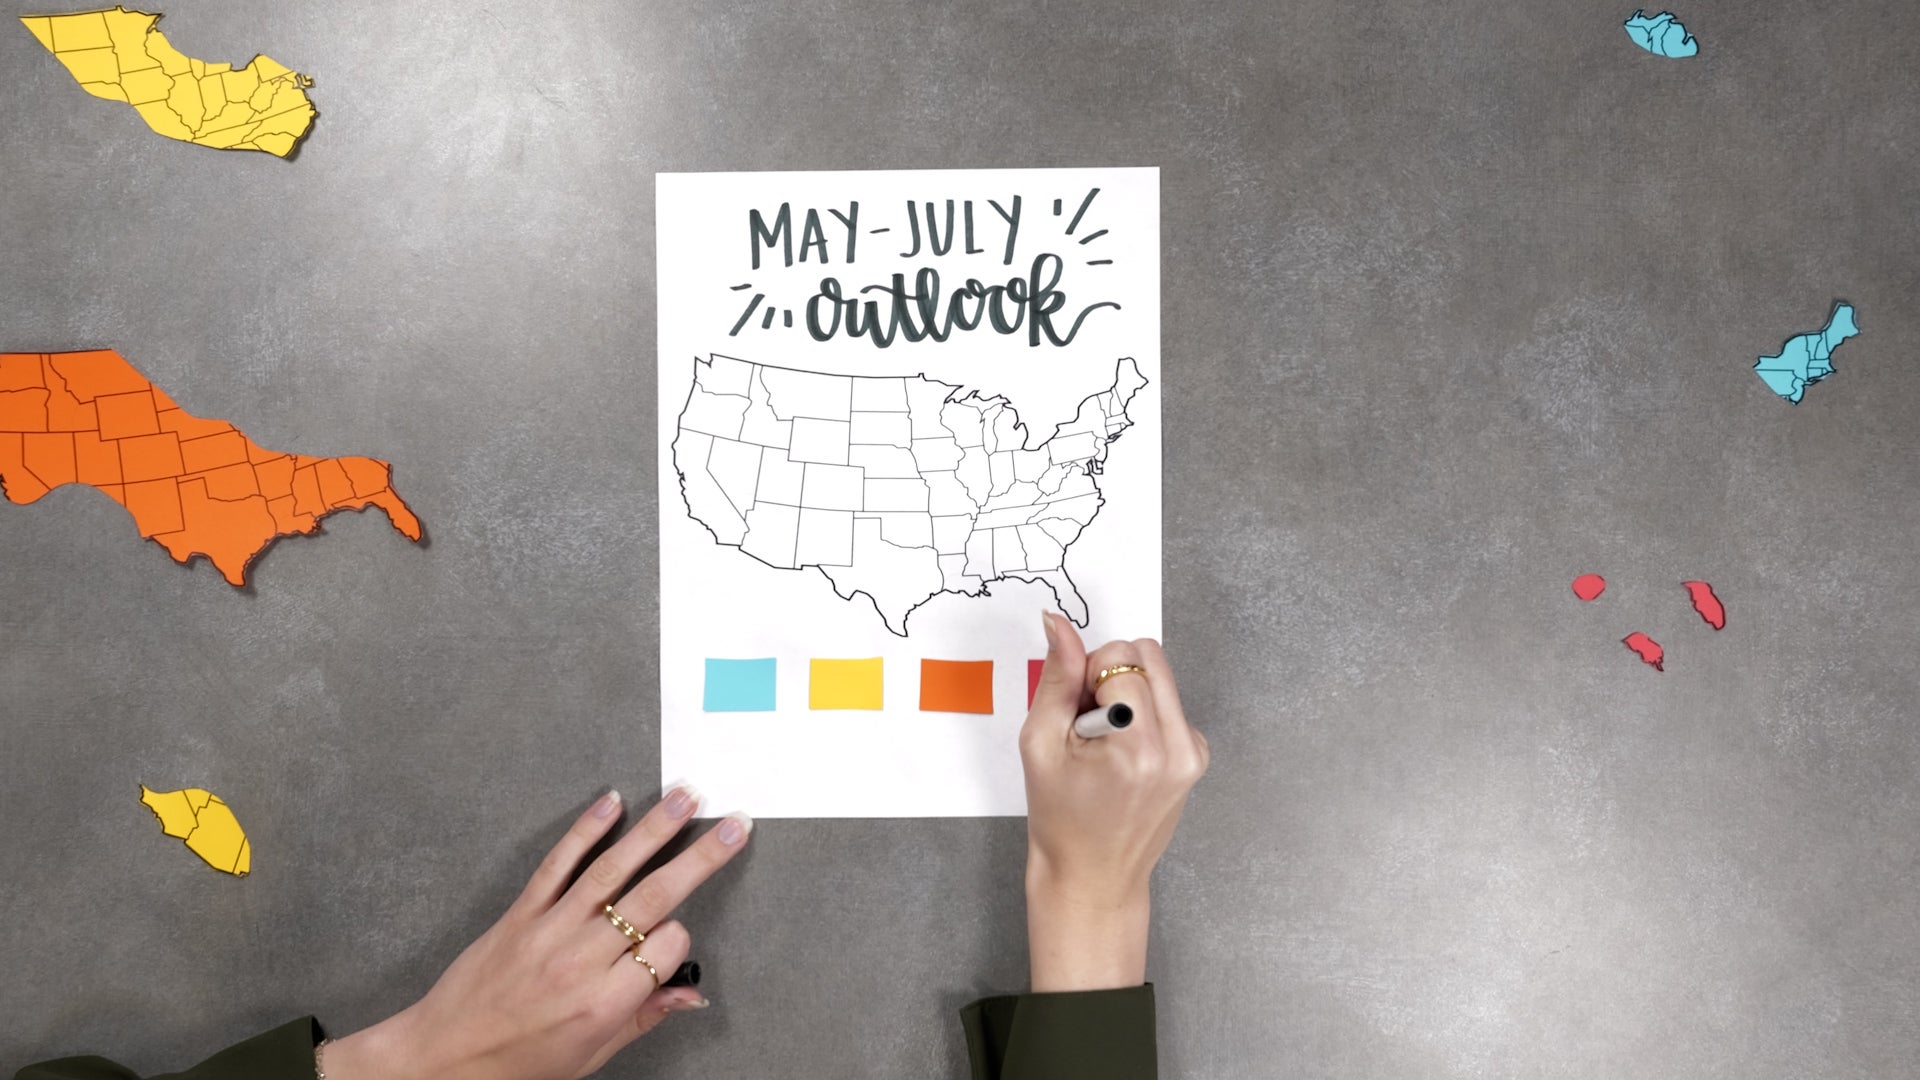 MAY-JULY
outlook